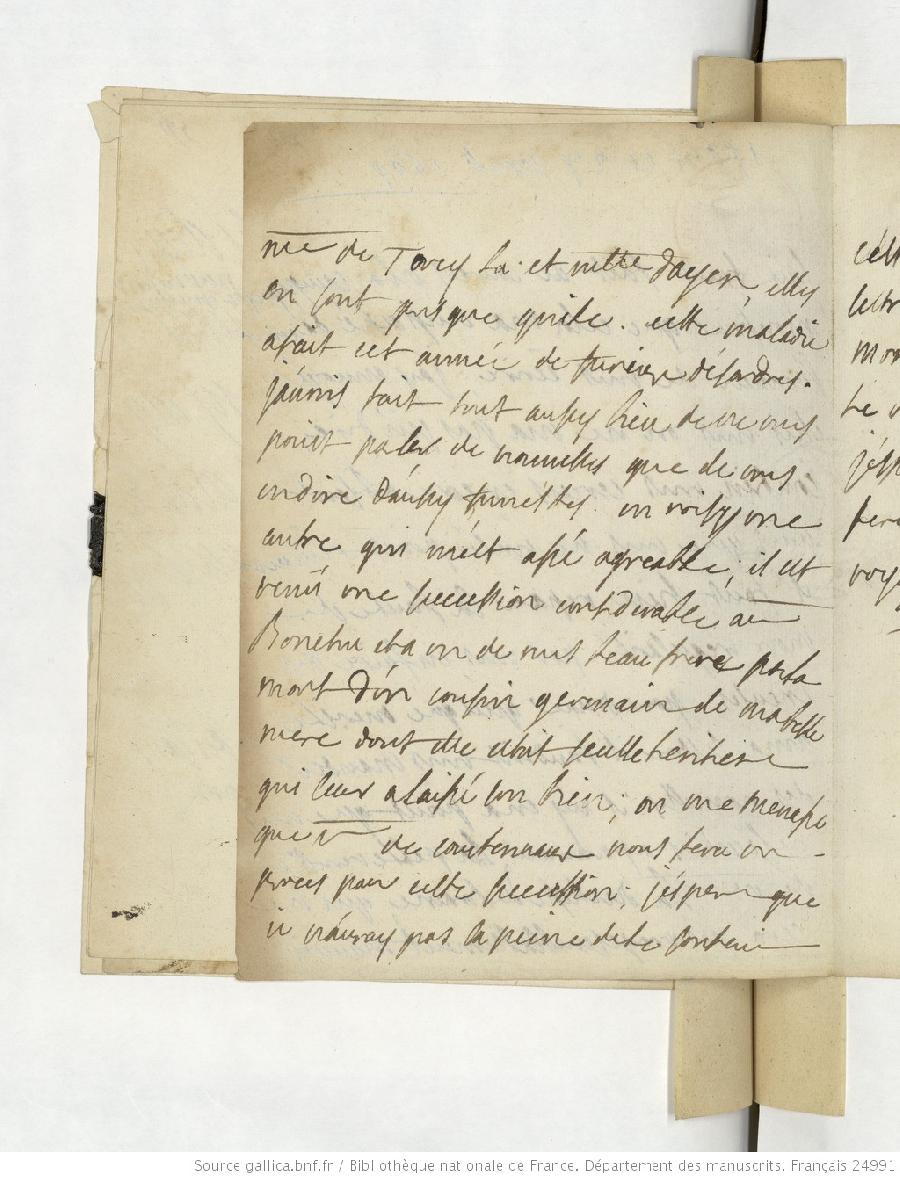 me de Torcy la et melle dayen, elles
en sont presque quite. cette maladie
afait cet année de furieux désordres.
jáurois fait tout aussy bien de ne vous
point parler de nouvelles que de vous
endire dáussy funestes. en voisy une
autre qui mélt assé agreable, il est
venü une succession considerable
et a un de mes beau frere par la
mort dún cousin germain de ma belle
mere dont elle etoit seulle heritiere
qui leur a laissé son bien; on me menasse
que de courtenvaux nous fera un
proces pour cette succession; jéspere que
je náuray pas la peine de le soutenir
célt
lettr
mon
Le
jésp
fera
voye
Source gallica.bnf.fr / Bibliothèque nationale de France. Département des manuscrits. Français 24991